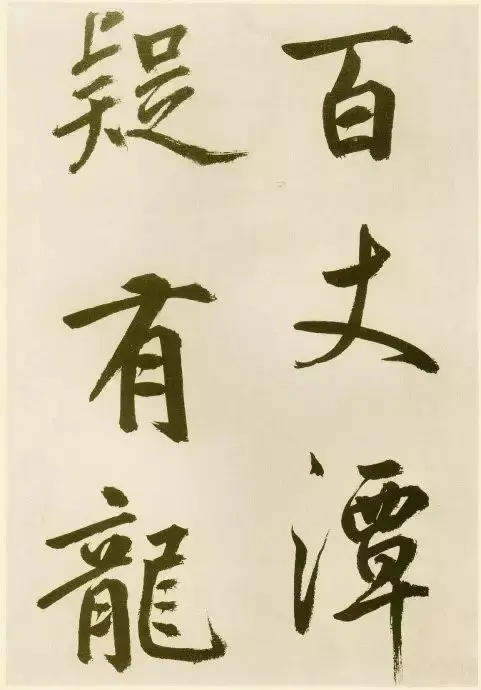 百丈潭
疑有龍